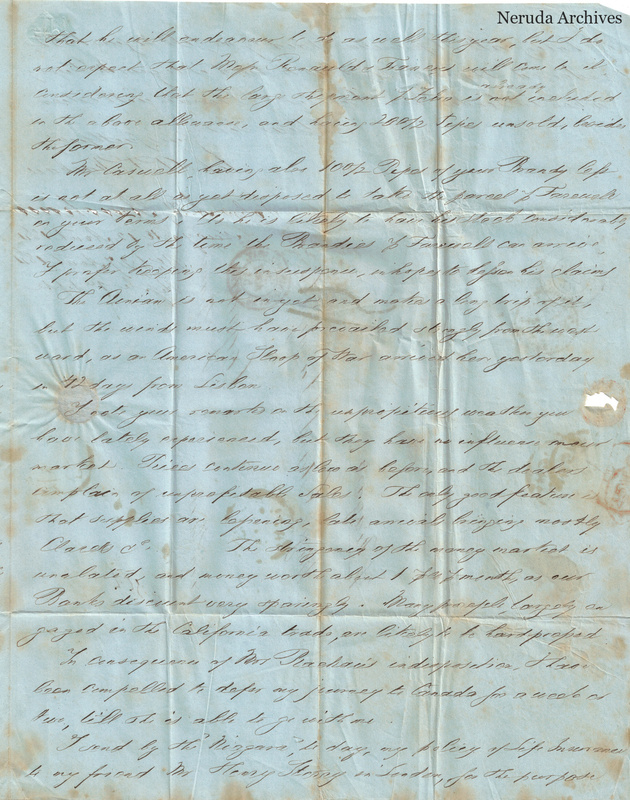 Neruda Archives
that he will endeavour to do as well this year, but I do
not expect that Mess Ronald & will come to it
considering that the large shipment is not included
in the above allowance, and having 200/2 Pipes unsold, besides
the former.
Mr Caswell, having also 100/2 Pipes of your Brandy left
is not at all disposed to take a parcel of
on your terms. As he is likely to have his stock considerably
reduced by the time the Brandies of can arrive,
I prefer keeping this in suspense, in hopes to his claims
The is not in yet and makes a long trip of it,
but the winds must have prevailed strongly from the west
ward, as an American Sloop of War arrived here yesterday
in 42 days from Lisbon.
I note your remarks on the unpropitious weather you
have lately experienced, but they have no influence on our
market. Prices continue as low as before, and the dealers
complain of unprofitable Sales. The only good feature is
that supplies are late arrivals bringing mostly
Claret &c. The stringency of the money market is
unabated, and money worth about 1 p% p month, as our
Banks discount very sparingly. Many people largely en
gaged in the California trade, are likely to be hard pressed
In consequence of Mrs indisposition, I have
been compelled to defer my journey to Canada for a week or
two, till she is able to go with me.
I send by the "Niagara" to day, my policy of Life Insurance
to my friend Mr Henry in London, for the purpose